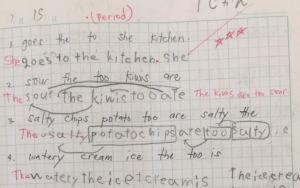 7, 15 .(period)
1. goes the to she kitchen.
She goes to the kitchen. she
2. sour the too kiwis are
The sour the kiwis too are The kiwis are too sour
3. salty chips potato too are salty the
The salty potato chips are too salty
4. watery cream ice the too is
The watery the ice cream is The ice cream